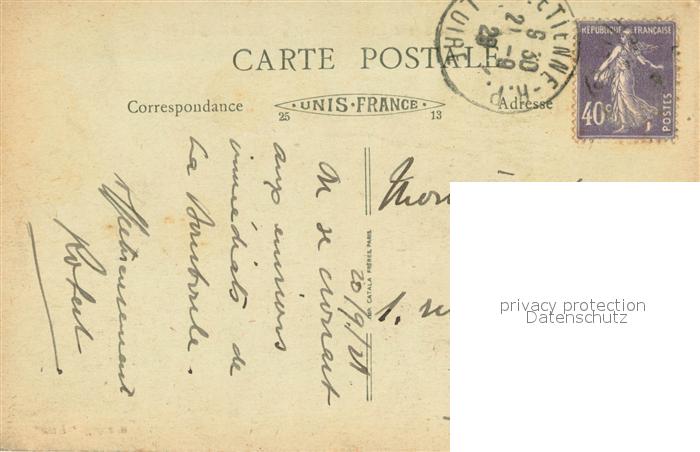 CARTE POSTALE
ETIENNE - R.P.
9 30
21 - 9
28
LOIRE
RÉPUBLIQUE FRANÇAISE
40c
POSTES
Correspondance
UNIS-FRANCE
25
13
Adresse
20/9/28
On se croirait
aux environs
immédiats de
La Bourboule.
Affectueusement
Robert
IMP. CATALA FRÈRES, PARIS
1.
privacy protection
Datenschutz